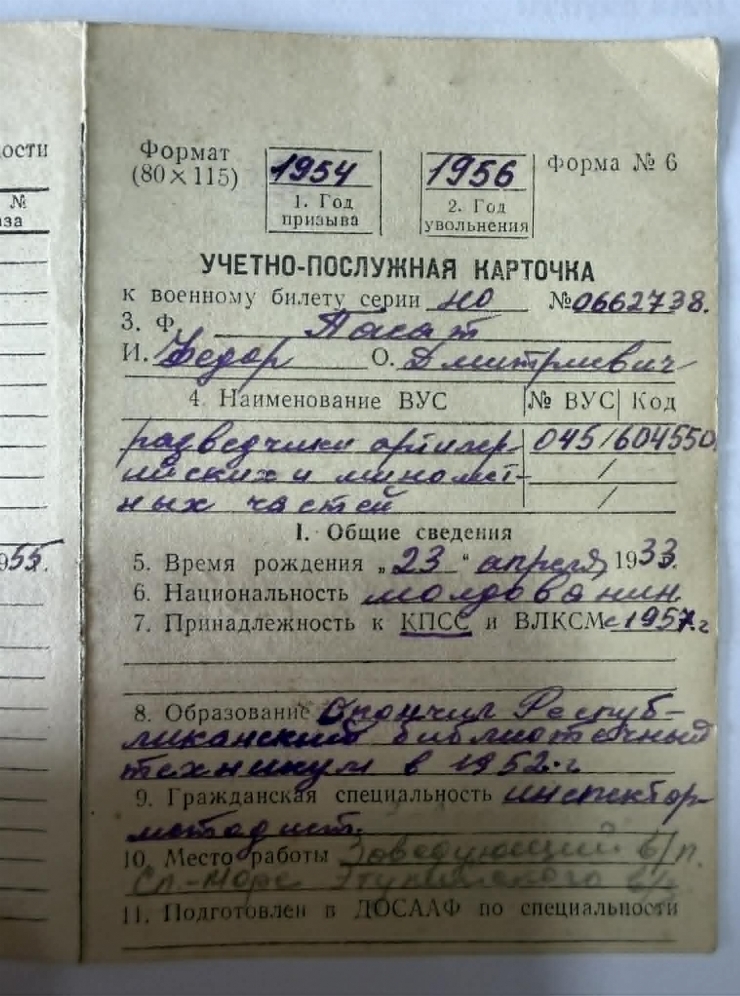 ости
№
аза
955.
Формат
(80×115)
1954
1. Год
призыва
1956
2. Год
увольнения
Форма № 6
УЧЕТНО-ПОСЛУЖНАЯ КАРТОЧКА
к военному билету серии НО №0662738.
3. Ф. Пасат
И. Федор О. Дмитриевич
4. Наименование ВУС № ВУС Код
разведчики артилер 045/604550
ийских и миномет- /
ных частей /
I. Общие сведения
5. Время рождения „23“ апреля 1933.
6. Национальность молдованин
7. Принадлежность к КПСС и ВЛКСМ с 1957.г
8. Образование Окончил Респуб-
ликанский библиотечный
техникум в 1952.г
9. Гражданская специальность инспектор-
методист.
10. Место работы Заведующий б/п.
Сл-Море
11. Подготовлен в ДОСААФ по специальности